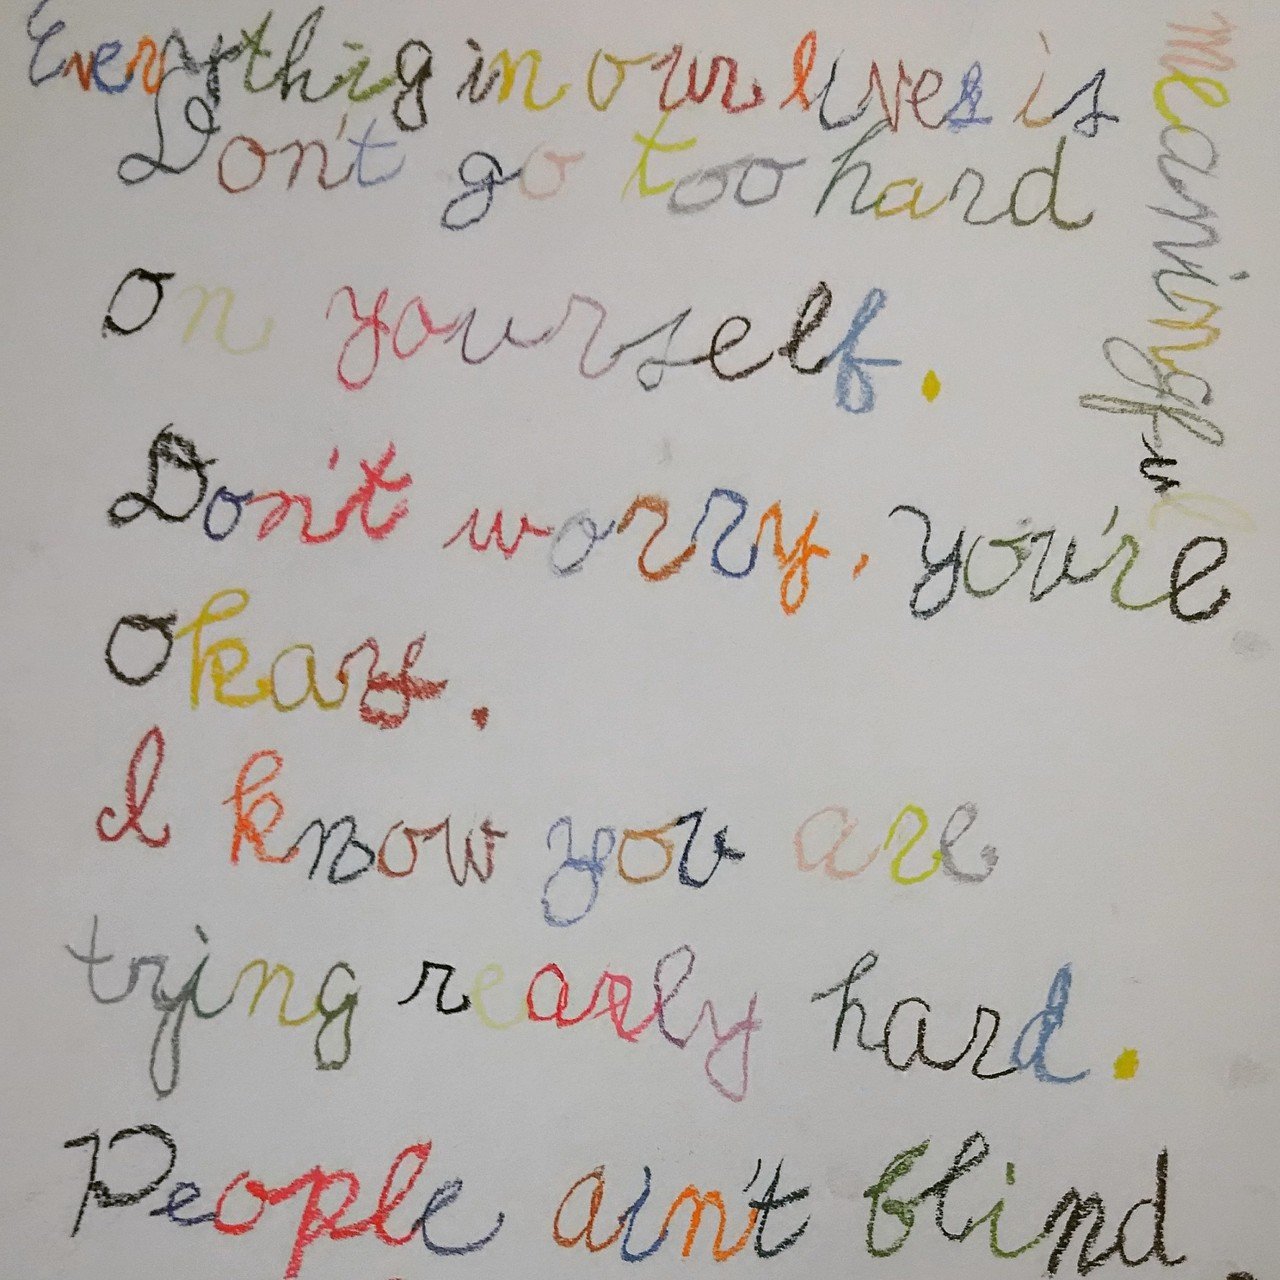 Everythig in our lives is
meaningful
Don't go too hard
on yourself.
Don't worry, you're
okay.
I know you are
trying really hard.
People ain't blind.